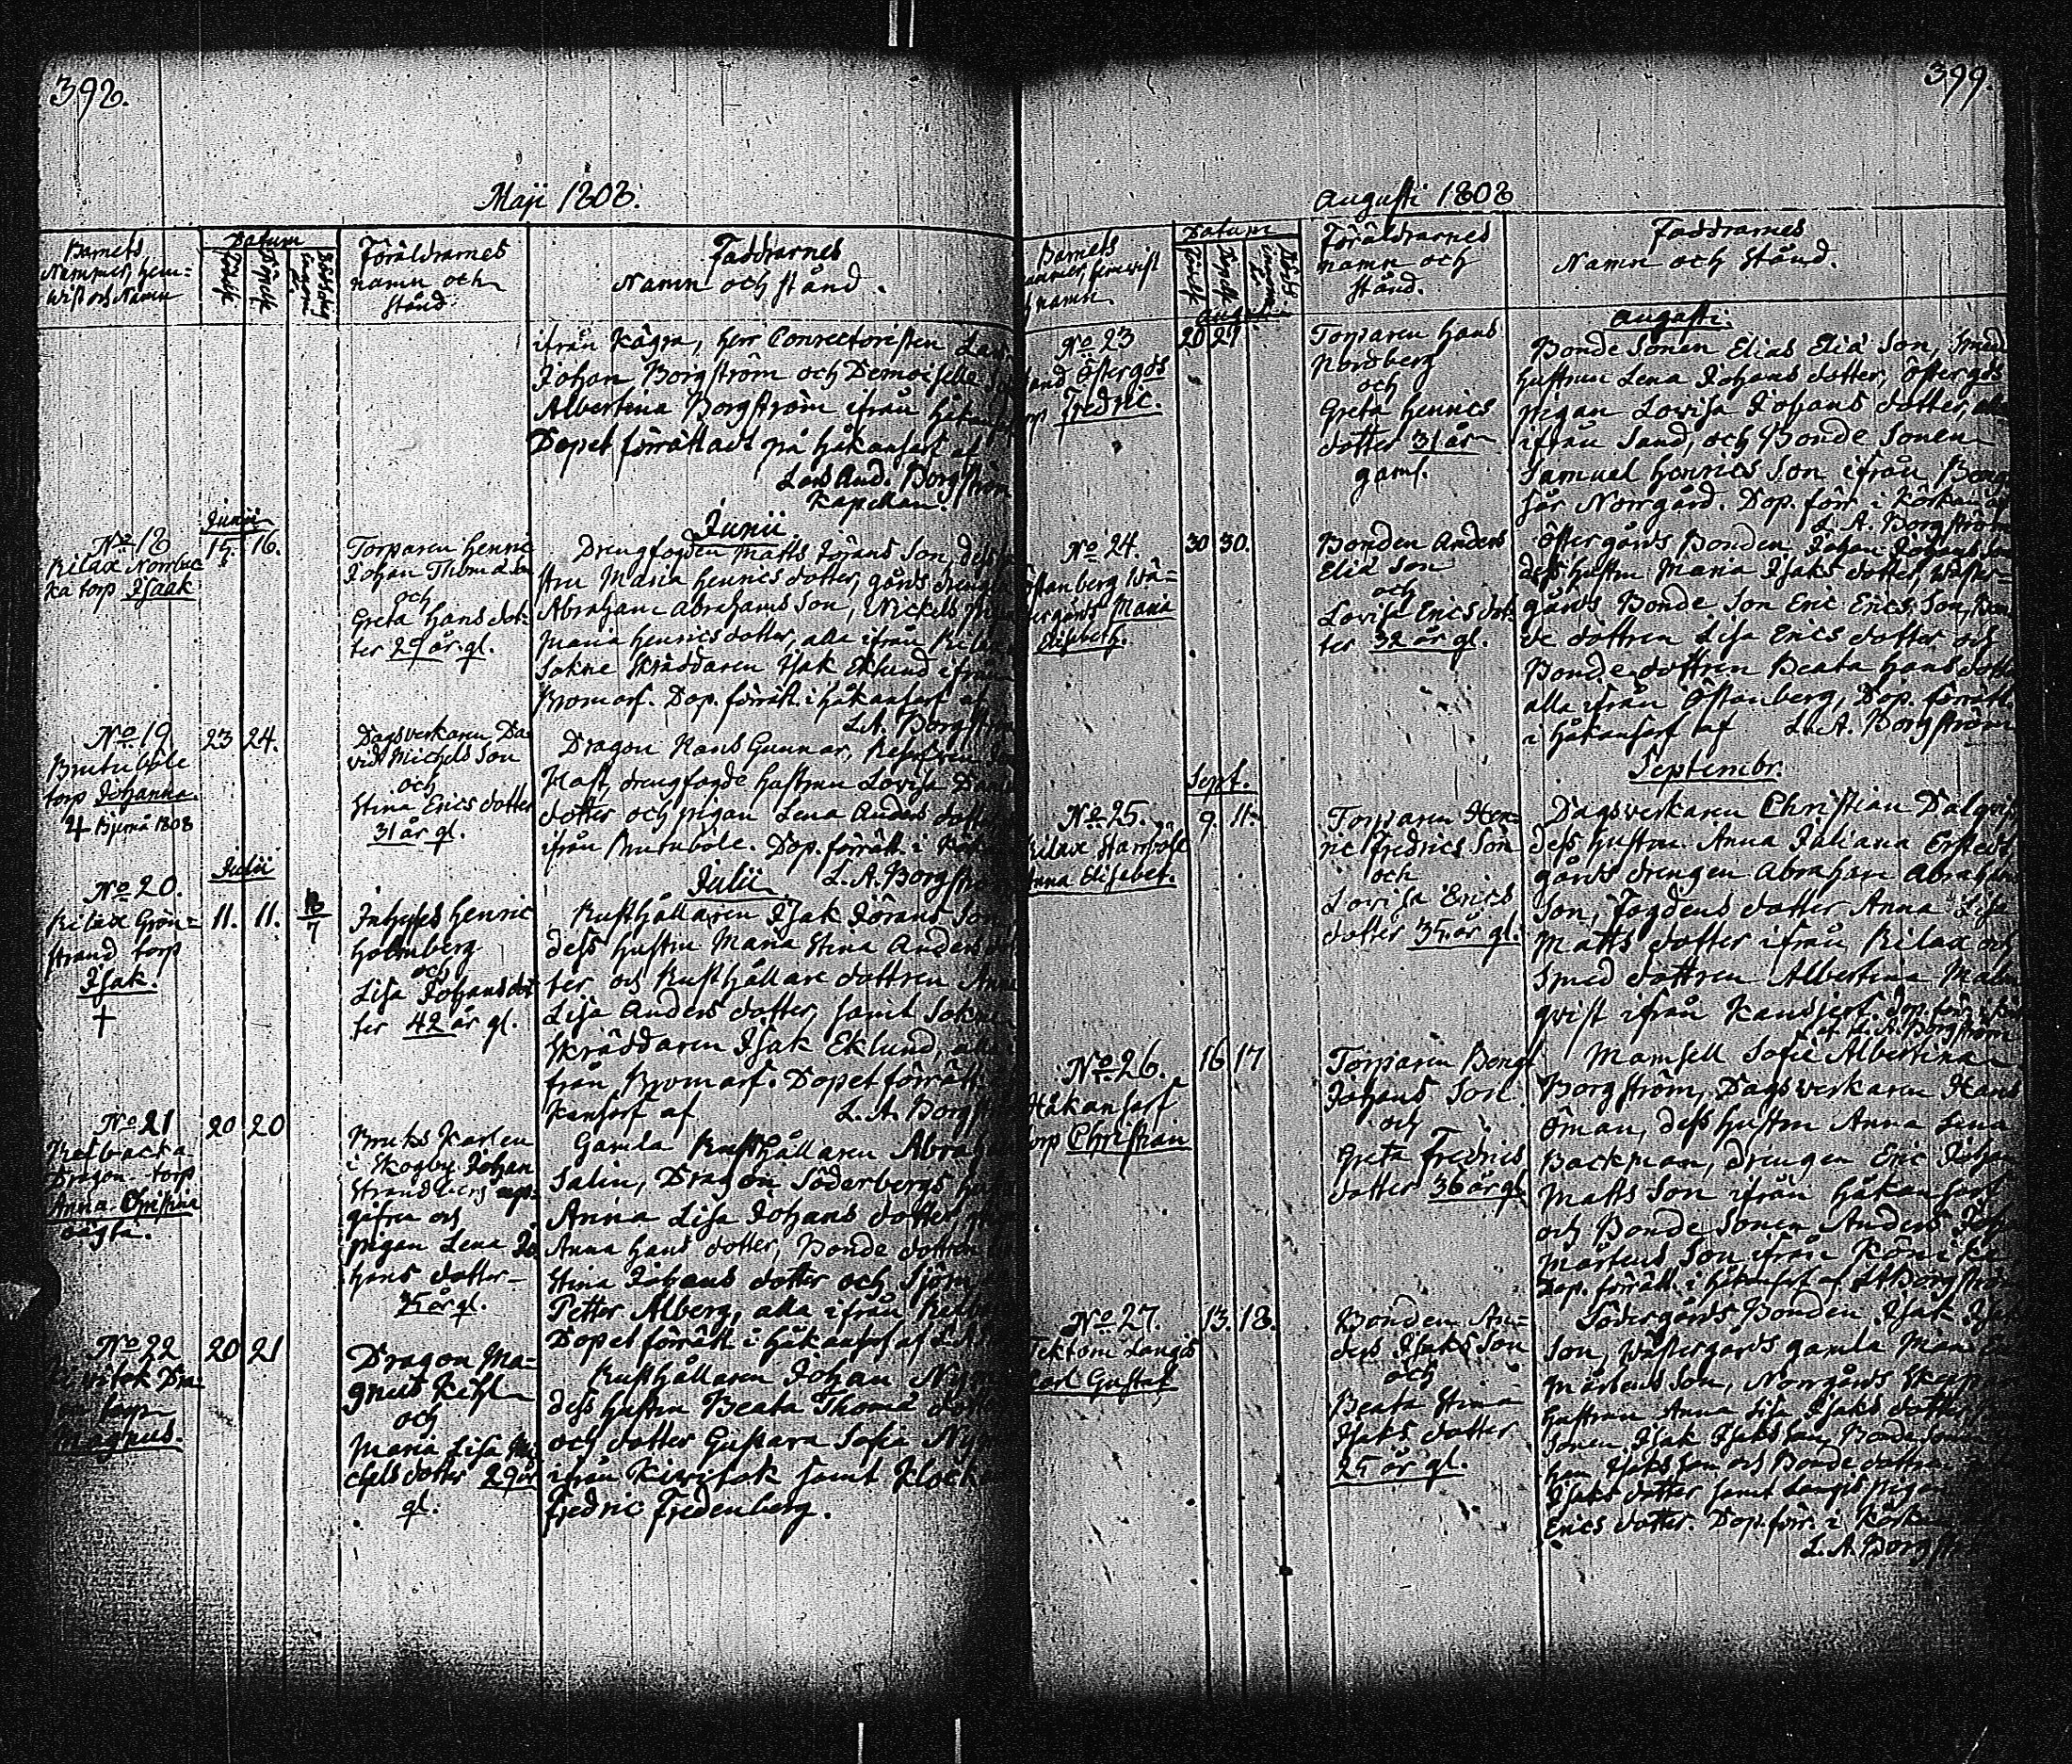 398.
Maji 1808.
Barnets
Nummer, hem-
wist och Namn
Datum
Födsel
Döpelse
Föräldrarnes
namn och
stånd
Faddrarnes
Namn och stånd.
ifrån Kägra, herr Conrectoristen Lars
Johan Borgström och Demoiselle
Albertina Borgström ifrån
Dopet förrättadt på Håkansarf af
Lars And. Borgström
Kapellan.
No 18
Rilax Norrbac
ka torp Isaak
Junii
15. 16.
Torparen Henric
Johan Thomasson
och
Greta Hans dot-
ter 29 år gl.
Junii
Drengfogden Matts Jörans Son, dess
stru Maria Henrics dotter, gårds drengen
Abraham Abrahams Son, Nickels
Maria Henrics dotter, alla ifrån Rilax
Sokne Skräddaren Isak Eklund ifrån
Bromarf. Dop. förrätt. i Håkansarf af
L. A. Borgström
No 19
Brutuböle
torp Johanna.
Bjernå 1808
23 24.
Dagsverkaren Da
vid Michels Son
och
Stina Erics dotter
31 år gl.
Dragon Hans Gunnar,
drengfogde hustrun Lovisa
dotter och pigan Lena Anders dotter
ifrån Brutuböle. Dop. förrätt. i
L. A. Borgström
No 20.
Rilax Grön-
strand torp
Isak.
†
Julii
11. 11.
Inhyses Henric
Holmberg
och
Lisa Johans dot
ter 42 år gl.
Julii
Rusthållaren Isak Jörans Son
dess hustru Maria Stina Anders dot
ter och Rusthållare dottren Anna
Lisa Anders dotter, samt Sokne
Skräddaren Isak Eklund, alla
från Bromarf. Dopet förrätt.
kansarf af L. A. Borgström
No 21
Refbacka
Dragon torp
Anna Christina
oägta.
20 20
Bruks Karlen
i Skogby Johan
Strandberg upp-
gifven och
pigan Lena Jo
hans dotter
35 år gl.
Gamla Rusthållaren Abraham
Salin, Dragon Söderbergs
Anna Lisa Johans dotter,
Anna Hans dotter, Bonde dottren
Stina Johans dotter och
Petter Alberg, alla ifrån
Dopet förrätt. i Håkansarf af
No 22
Magnus.
20 21
Dragon Ma-
gnus Kihl
och
Maria Lisa Mi
chels dotter 29 år
gl.
Rusthållaren Johan
dess hustru Beata Thomæ dotter
och dotter Gustava Sofia
ifrån Kivitok samt Klock
Fredric Fredenberg.
399.
Augusti 1808
Barnets
nummer, hemwist
namn
Datum
Födsel
Döpelse
Föräldrarnes
namn och
stånd.
Faddrarnes
Namn och stånd.
No 23
Sand Östergårds
torp Fredric.
Augusti
20 27
Torparen Hans
Nordberg
och
Greta Henrics
dotter 31 år
gaml.
Augusti.
Bonde Sonen Elias Eliæ Son, Smed
hustrun Lena Johans dotter, Östergårds
pigan Lovisa Johans dotter, alla
ifrån Sand, och Bonde Sonen
Samuel Henrics Son ifrån
Norrgård. Dop. förr. i Körkan af
L. A. Borgström
No 24.
Östanberg Wä-
stergårds Maria
Elisabeth.
30 30.
Bonden Anders
Eliæ Son
och
Lovisa Erics dot-
ter 32 år gl.
Östergårds Bonden Johan Johans Son
dess hustru Maria Isaks dotter, Wäster-
gårds Bonde Son Eric Erics Son, Bon
de dottren Lisa Erics dotter och
Bonde dottren Beata Hans dotter
alla ifrån Östanberg, Dop. förrätt.
i Håkansarf af L. A. Borgström
Septembr.
No 25.
Rilax Starrböle
Anna Elisabet.
Sept.
9. 11.
Torparen Hen-
ric Fredrics Son
och
Lovisa Erics
dotter 35 år gl.
Dagsverkaren Christian Dalqvist
dess hustru Anna Juliana
gårds drengen Abraham Abrahams
Son, Fogdens dotter Anna Lisa
Matts dotter ifrån Rilax och
Smed dottren Albertina Malm
qvist ifrån Kansjerf. Dop. förr.
af L. A. Borgström
No 26.
Håkansarf
torp Christian
16 17
Torparen Bengt
Johans Son
och
Greta Fredrics
dotter 36 år gl.
Mamsell Sofie Albertina
Borgström, Dagsverkaren Hans
Öman, dess hustru Anna Lena
Backman, drengen Eric Johan
Matts Son ifrån Håkansarf
och Bonde Sonen Anders Joh
Mårtens Son ifrån
Dop. förrätt. i Håkansarf af L A Borgström
No 27.
Tektom Långös
Carl Gustaf
13. 18.
Bonden An-
ders Isaks Son
och
Beata Stina
Isaks dotter
25 år gl.
Södergårds Bonden Isak
Son, Wästergårds gamla
Mårtens Son, Norrgårds
hustrun Anna Lisa Isaks dotter,
Sonen Isak Isaks Son, Bonde Sonen
Isaks Son och Bonde dottren
Isaks dotter samt Långös pigan
Erics dotter. Dop. förr. i Körkan
L. A. Borgström